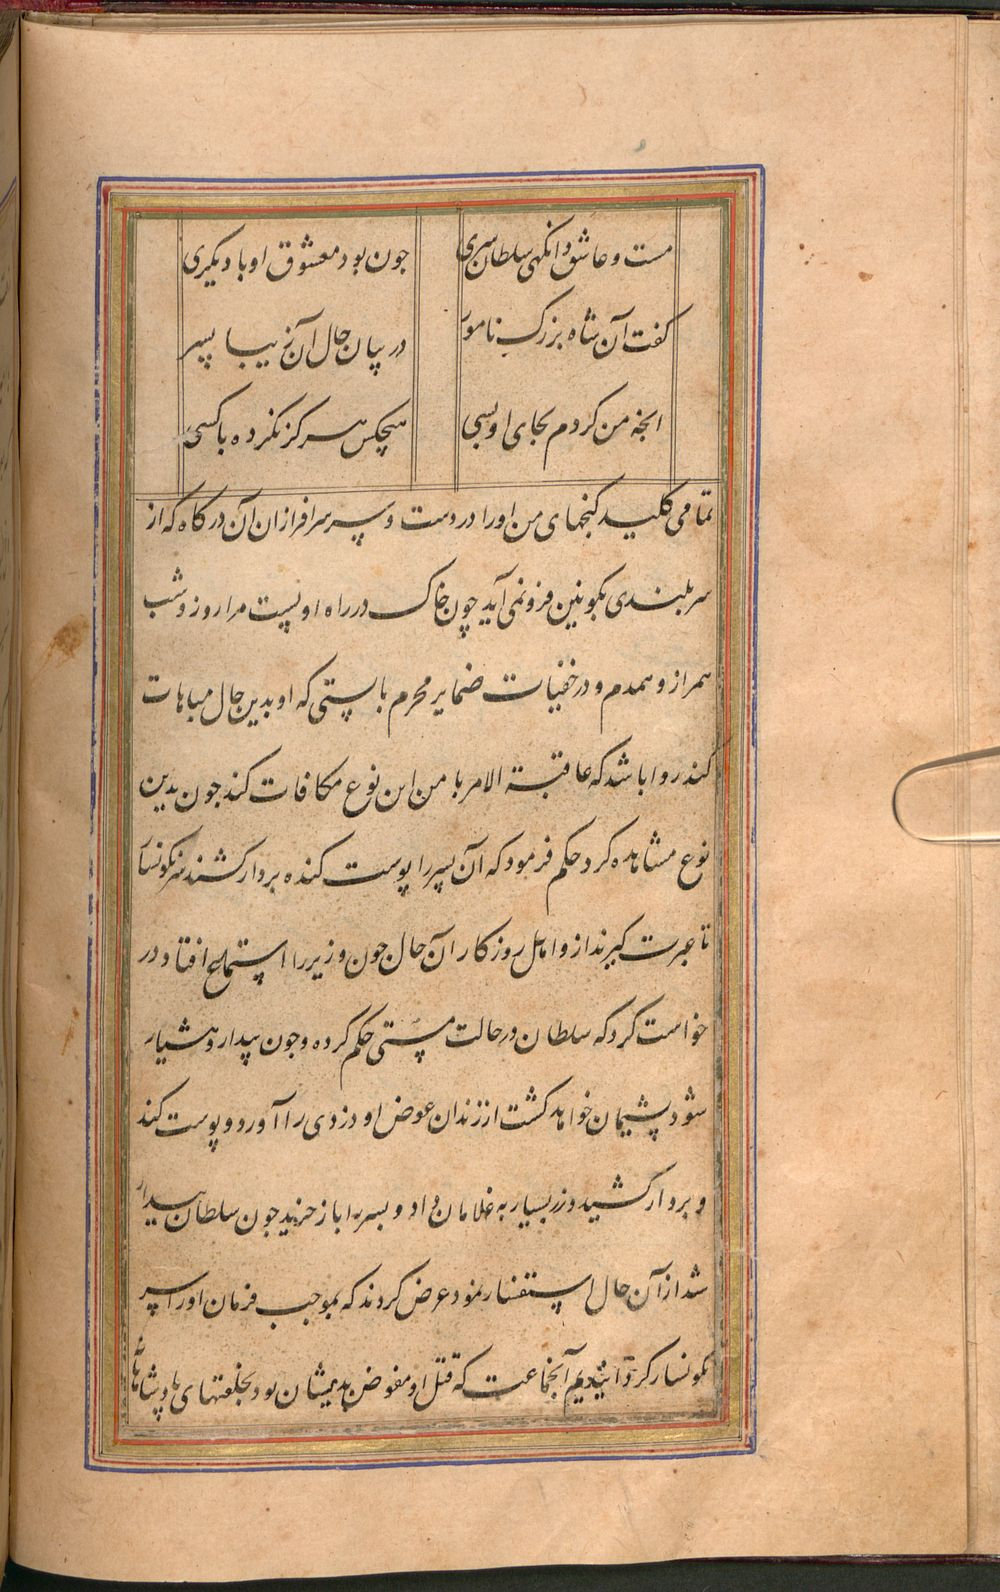 مست و عاشق وانکهی سلطان سری
جون بود معشوق او با دیکری
کفت آن شاه بزرک نامور
در بیان حال آن زیبا پسر
انجه من کردم بجای او بسی
هیچکس هرکز نکرده با کسی
تمامی کلید کنجهای من اورا در دست و سر سرافرازان آن درکاه که از
سربلندی بکونین فرو نمی آید چون خاک در راه او پست مرا روز و شب
همراز و همدم و در خفیات ضمایر محرم بایستی که او بدین حال مباهات
کند روا باشد که عاقبة الامر با من این نوع مکافات کند جون بدین
نوع مشاهده کرد حکم فرمود که آن پسر را پوست کنده بردار کشند سرنکونسار
تا عبرت کیرند از و اماثل روزکار آن حال جون وزیر را استماع افتاد در
خواست کرد که سلطان در حالت مستی حکم کرده و جون بیدار و هشیار
شود پشیمان خواهد کشت از زندان عوض او دزدی را آورد و پوست کند
و بردار کشید و زر بسیار به غلامان داد و بسر را باز خرید جون سلطان بیدار
شد از آن حال استفسار نمود عرض کردند که بموجب فرمان او را سر
نکونسار کردانیدیم آنجماعت که قتل او مفوض بدیشان بود بخلعتهای